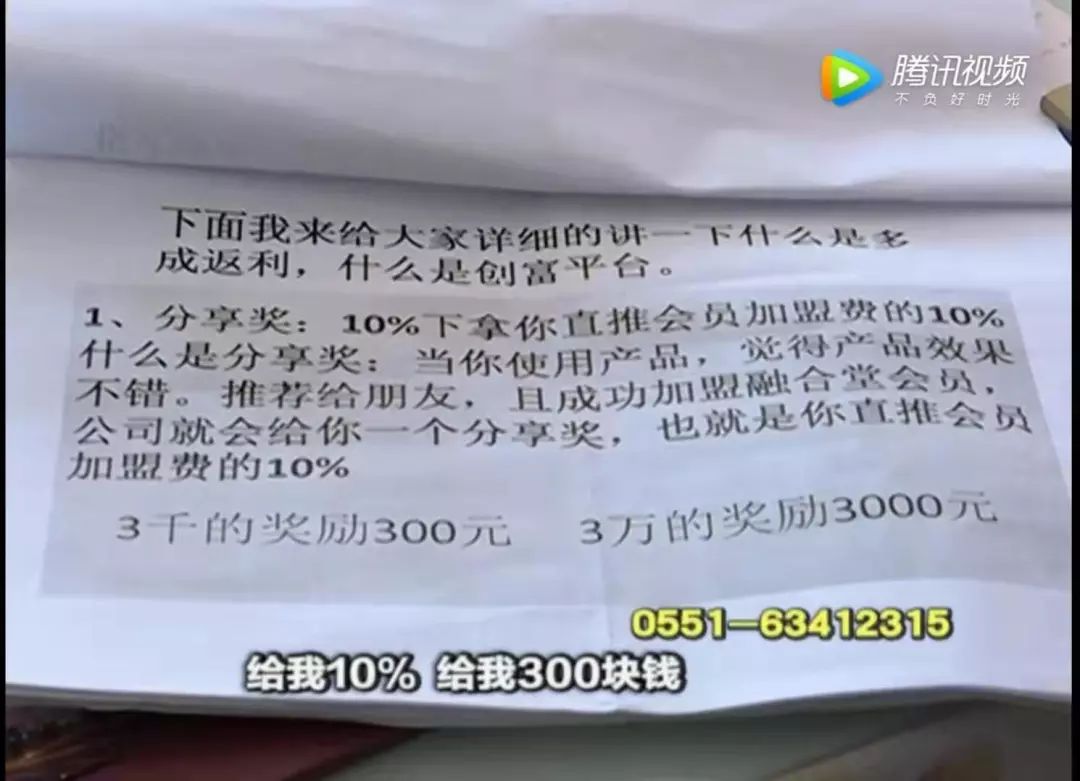 腾讯视频
不负好时光
下面我来给大家详细的讲一下什么是多
成返利，什么是创富平台。
1、分享奖：10%下拿你直推会员加盟费的10%
什么是分享奖：当你使用产品，觉得产品效果
不错。推荐给朋友，且成功加盟融合堂会员，
公司就会给你一个分享奖，也就是你直推会员
加盟费的10%
3千的奖励300元 3万的奖励3000元
0551—63412315
给我10% 给我300块钱